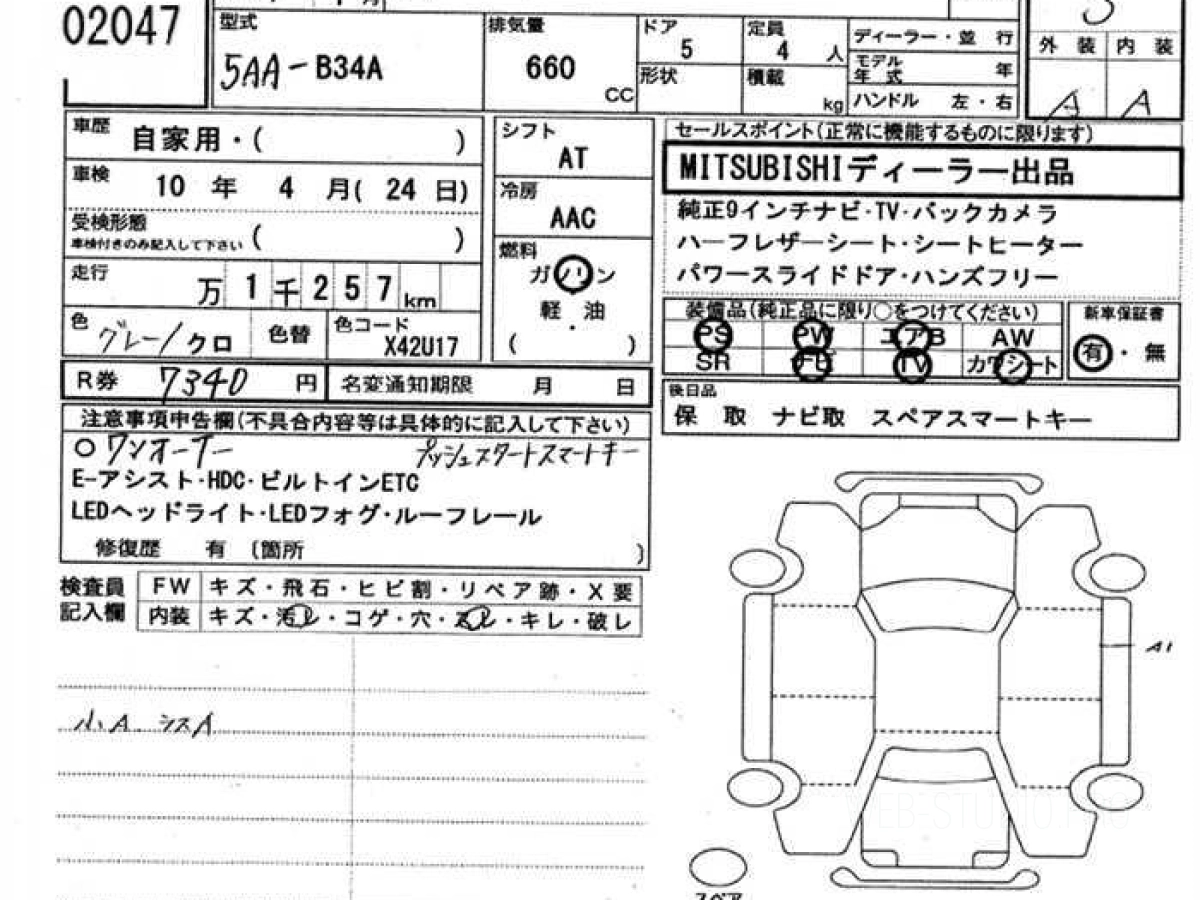 02047
型式
5AA-B34A
排気量
660
CC
ドア
5
形状
定員
4 人
積載
kg
ディーラー・並 行
モデル
年 式 年
ハンドル 左・右
外 装 内 装
A A
車歴 自家用・( )
車検 10 年 4 月( 24 日)
受検形態
車検付きのみ記入して下さい ( )
走行 万 1 千 2 5 7 km
色 グレー/クロ 色替 色コード
X42U17
シフト
AT
冷房
AAC
燃料
ガソリン
軽 油
・
( )
セールスポイント(正常に機能するものに限ります)
MITSUBISHIディーラー出品
純正9インチナビ・TV・バックカメラ
ハーフレザーシート・シートヒーター
パワースライドドア・ハンズフリー
装備品(純正品に限り○をつけてください)
PS PW エアB AW
SR TV カワシート
新車保証書
有・無
R券 7340 円 名変通知期限 月 日
後日品
保 取 ナビ取 スペアスマートキー
注意事項申告欄(不具合内容等は具体的に記入して下さい)
○ワンオーナー プッシュスタートスマートキー
E-アシスト・HDC・ビルトインETC
LEDヘッドライト・LEDフォグ・ルーフレール
修復歴 有 (箇所 )
検査員
記入欄
FW キズ・飛石・ヒビ割・リペア跡・X要
内装 キズ・汚レ・コゲ・穴・スレ・キレ・破レ
A1
小A
スペア